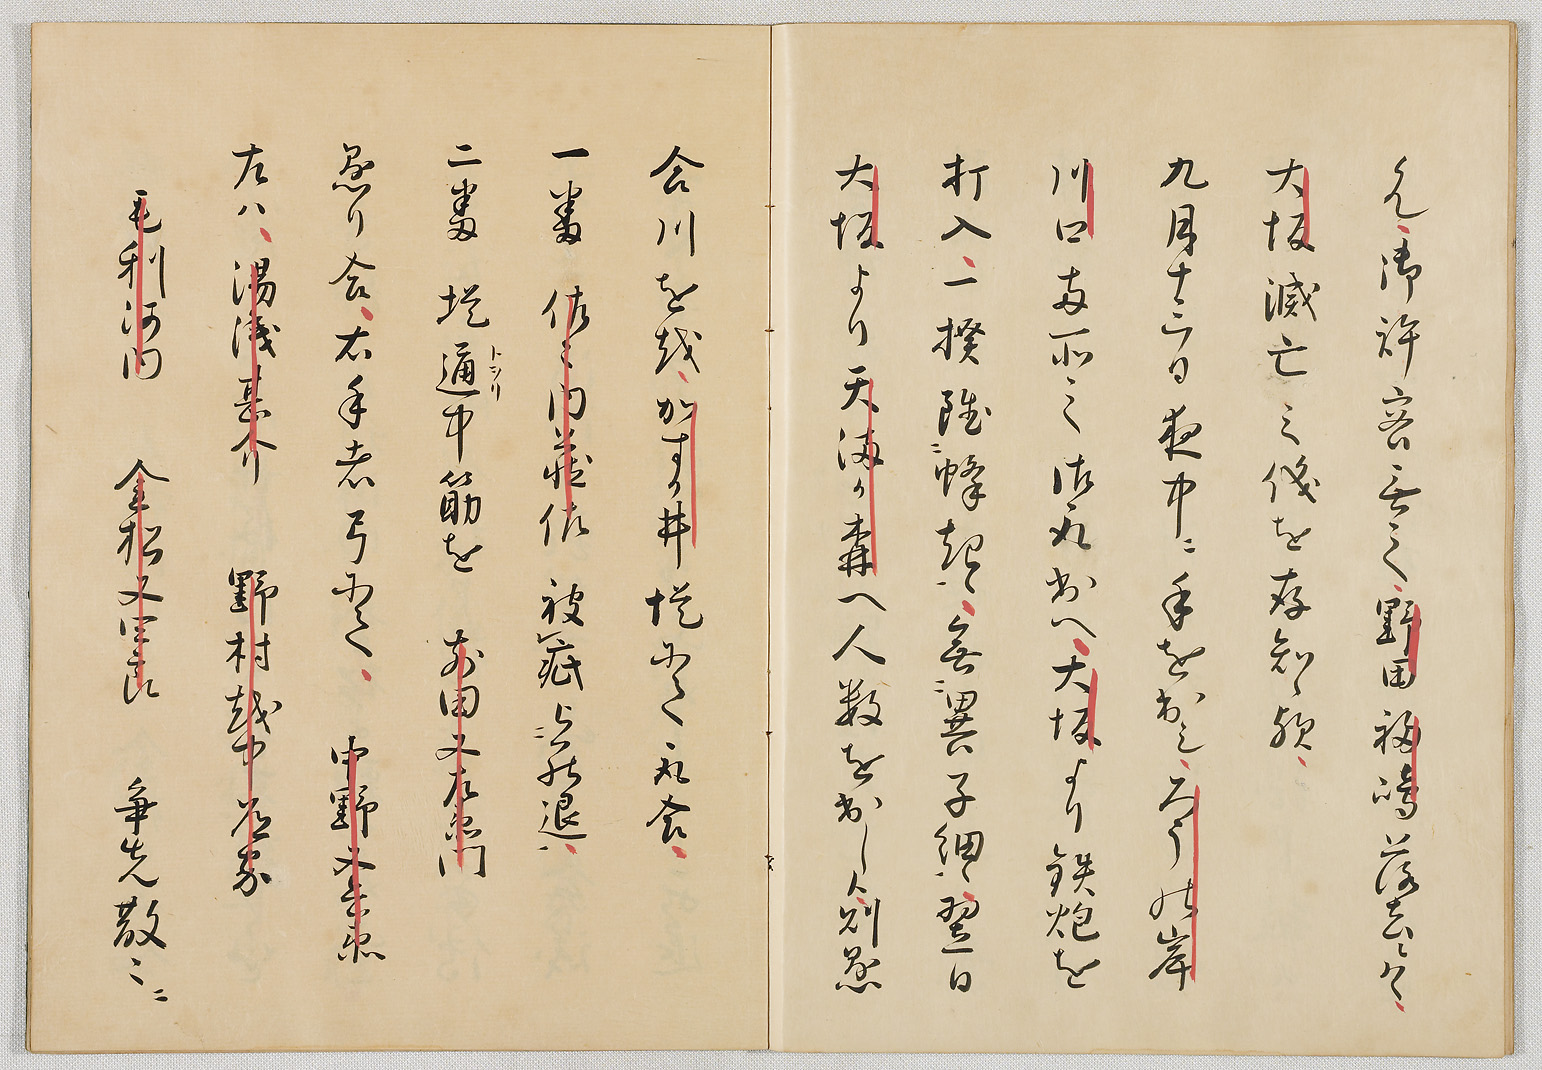 御許容無之、野田福嶋落去候ハ、
大坂滅亡之儀を存知候歟、
九月十三日夜中ニ手を出し、ろうの岸
川口両所之御取出へ、大坂より鉄炮を
打入、一揆雖ニ蜂起一、無ニ異子細一、翌日
大坂より天満か森へ人数を出し候、則懸
合川を越、かすか井堤にて取合、
一番 佐々内蔵佐 被疵罷退、
二番 堤通中筋を 前田又左衛門
トヲリ
懸り合、右手者弓にて、 中野又兵衛
左ハ、湯浅甚介 野村越中 各
毛利河内 金松又四郎 争先散々ニ